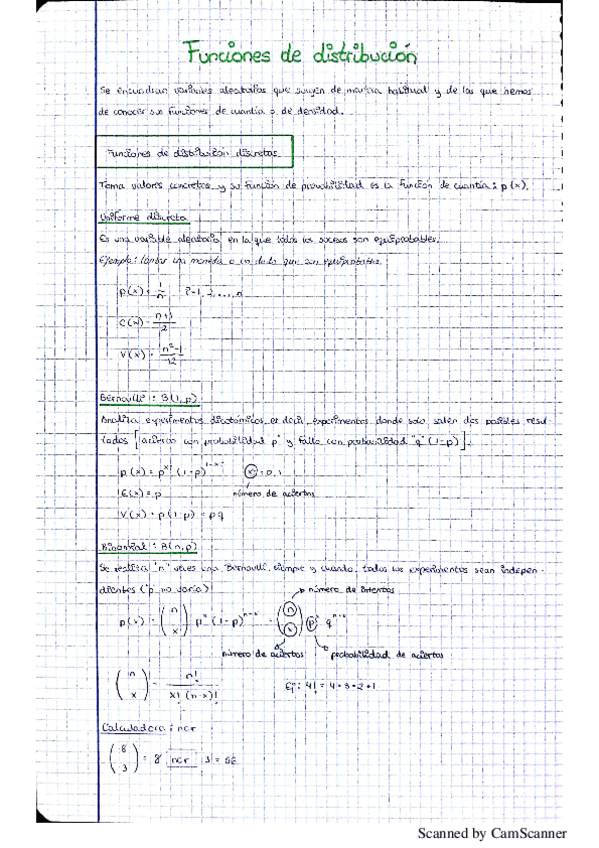 Funciones de distribución
Se encuentran variables aleatorias que surgen de manera habitual y de las que hemos
de conocer sus funciones de cuantía o de densidad.
Funciones de distribución discretas
Toma valores concretos y su función de probabilidad es la función de cuantía: p(x).
Uniforme discreta
Es una variable aleatoria en la que todos los sucesos son equiprobables.
Ejemplo: lanzar una moneda o un dado que son equiprobables.
p(x) = 1/n i=1, 2, ..., n
E(x) = n+1/2
V(x) = n²-1/12
Bernouilli: B(1, p)
Analiza experimentos dicotómicos, es decir, experimentos donde solo salen dos posibles resul-
tados [acierto con probabilidad "p" y fallo con probabilidad "q" (1-p)].
p(x) = pˣ (1-p)¹⁻ˣ x = 0, 1
E(x) = p número de aciertos
V(x) = p(1-p) = pq
Binomial: B(n, p)
Se realiza "n" veces una Bernouilli, siempre y cuando, todos los experimentos sean indepen-
dientes (p no varía)
número de intentos
p(x) = (n x) pˣ (1-p)ⁿ⁻ˣ = (n x) pˣ qⁿ⁻ˣ
número de aciertos probabilidad de acierto
(n x) = n!/x! (n-x)! Ej: 4! = 4·3·2·1
Calculadora: ncr
(8 3) = 8 ncr 3 = 56
Scanned by CamScanner